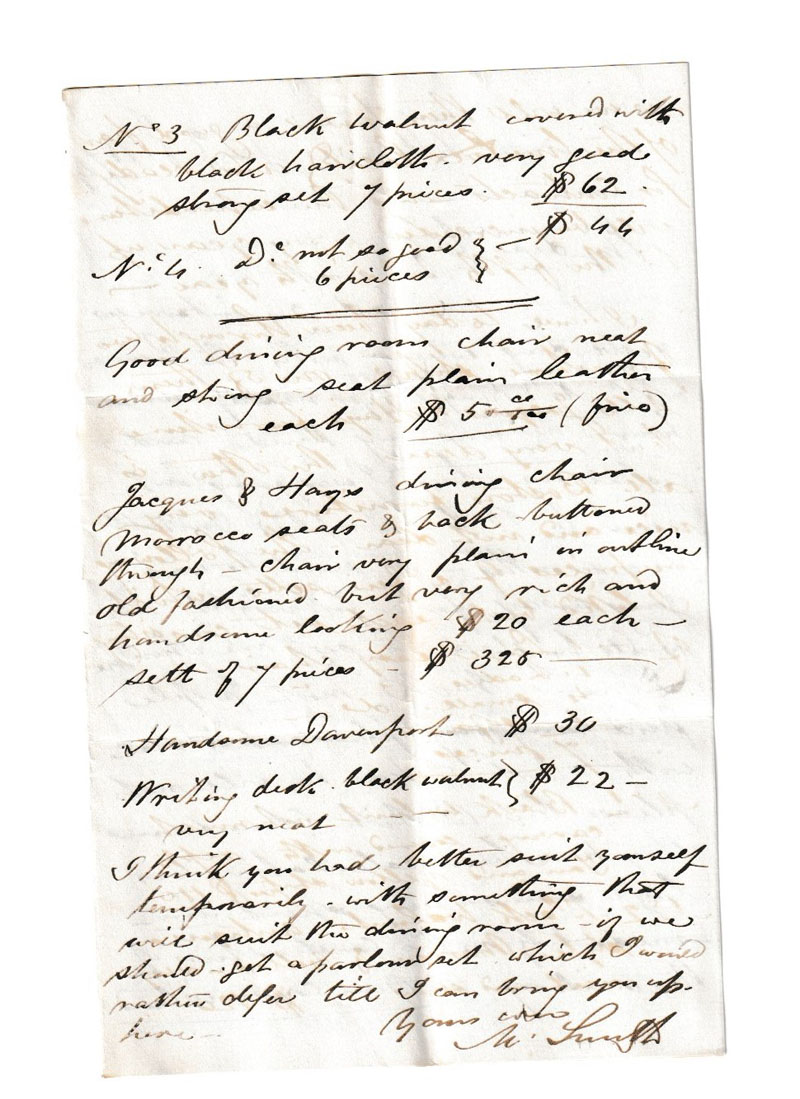 No 3 Black walnut covered with
black haircloth - very good
strong set 7 pieces. $62.
$44
No 4. Do not so good
6 pieces
Good dining room chair neat
and strong seat plain leather
each $5
Jacques & Hays dining chair
Morrocco seats & back buttoned
through - chair very plain in outline
old fashioned but very rich and
handsome looking $20 each -
sett of 7 pieces - $325
Handsome Davenport $30
Writing desk black walnut } $22 -
very neat
I think you had better suit yourself
temporarily - with something that
will suit the dining room - if we
should get a parlour set which I would
rather defer till I can bring you up-
here -
Yours ever
M. Smith